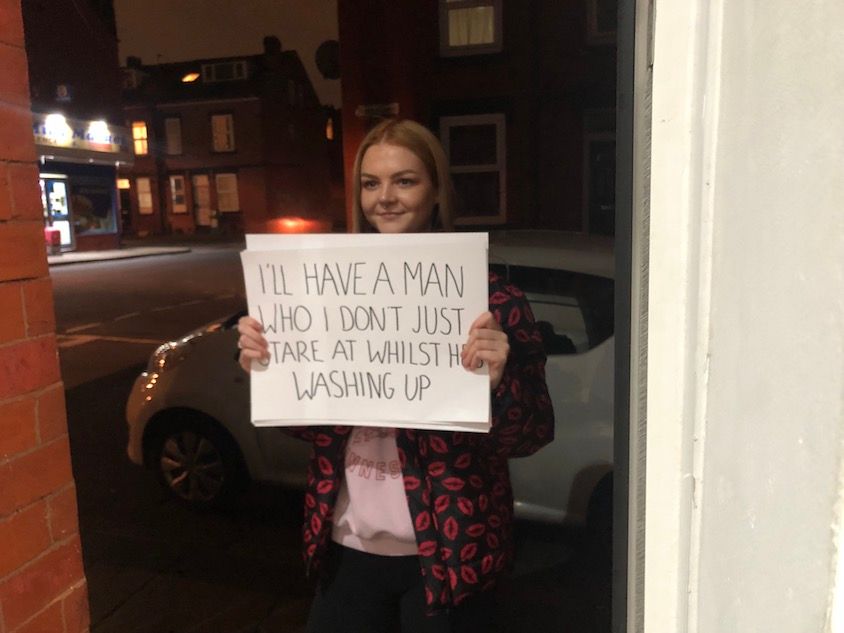 I'LL HAVE A MAN
WHO I DON'T JUST
STARE AT WHILST HE'S
WASHING UP